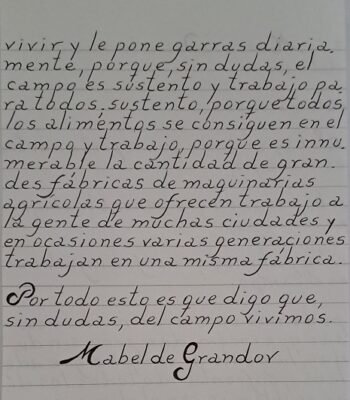 vivir y le pone garras diaria.
mente, porque, sin dudas, el
campo es sustento y trabajo pa.
ra todos; sustento, porque todos
los alimentos se consiguen en el
campo y trabajo, porque es innu.
merable la cantidad de gran.
des fábricas de maquinarias
agrícolas que ofrecen trabajo a
la gente de muchas ciudades y
en ocasiones varias generaciones
trabajan en una misma fábrica.
Por todo esto es que digo que,
sin dudas, del campo vivimos.
Mabel de Grandov